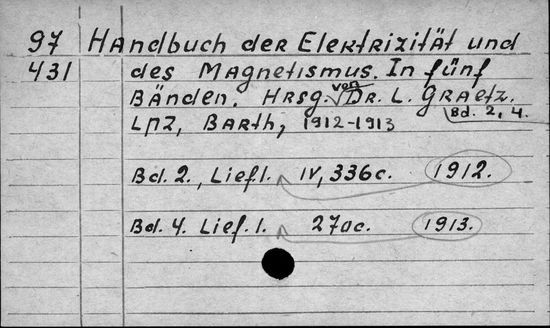 97 Handbuch der Elektrizität und
431 des Magnetismus. In fünf
Bänden. Hrsg. von Dr. L. Graetz.
Bd. 2, 4.
Lpz, Barth, 1912-1913
Bd. 2., Lief. 1. IV, 336c. 1912.
Bd. 4. Lief. 1. 270c. 1913.